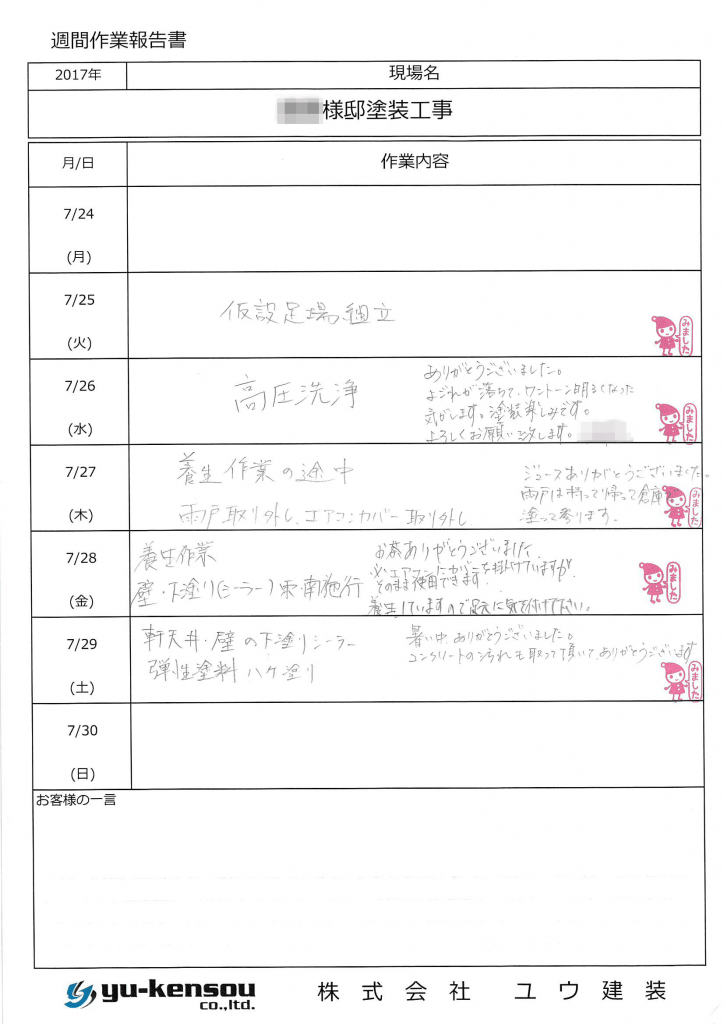 週間作業報告書
2017年
現場名
様邸塗装工事
月/日
作業内容
7/24
(月)
7/25
(火)
仮設足場組立
みました
7/26
(水)
高圧洗浄
ありがとうございました。
よごれが落ちて、ワントーン明るくなった
気がします。塗装楽しみです。
よろしくお願い致します。
みました
7/27
(木)
養生作業の途中
雨戸取り外し、エアコンカバー取り外し
ジュースありがとうございました。
雨戸は持って帰って倉庫
塗って参ります。
みました
7/28
(金)
養生作業
壁・下塗り(シーラー)東・南施行
お茶ありがとうございました。
※エアコンにカバーを掛けていますが
そのまま使用できます。
養生していますので足元に気を付けて下さい。
みました
7/29
(土)
軒天井・壁の下塗りシーラー
弾性塗料ハケ塗り
暑い中、ありがとうございました。
コンクリートの汚れも取って頂いて、ありがとうございます
みました
7/30
(日)
お客様の一言
yu-kensou
co.,ltd.
株式会社 ユウ建装